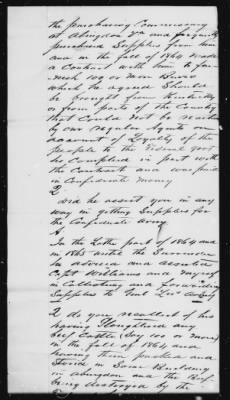 the purchasing Commissary
at Abingdon Va and frequently
purchased Supplies from him
and in the fall of 1864 made
a Contract with him to fur-
nish 100 or more Beeves
which he agreed Should
be brought from Kentucky
or from parts of the Country
that Could not be reached
by our regular Agents on
account of Loyalty of the
People to the Federal govt
he Complied in part with
the Contract and was paid
in Confederate money
2
Did he assist you in any
way in getting Supplies for
the Confederate army
A
In the Latter part of 1864 and
in 1865 until the Surrender
he advised and assisted
Capt Williams and myself
in Collecting and forwarding
Supplies to Genl Lees Army
2 do you recollect of his
having Slaughtered any
beef Cattle (Say 100 or more)
in the fall of 1864 and
having them packed and
Stored in Some Building
in Abingdon and the Beef
being destroyed by the